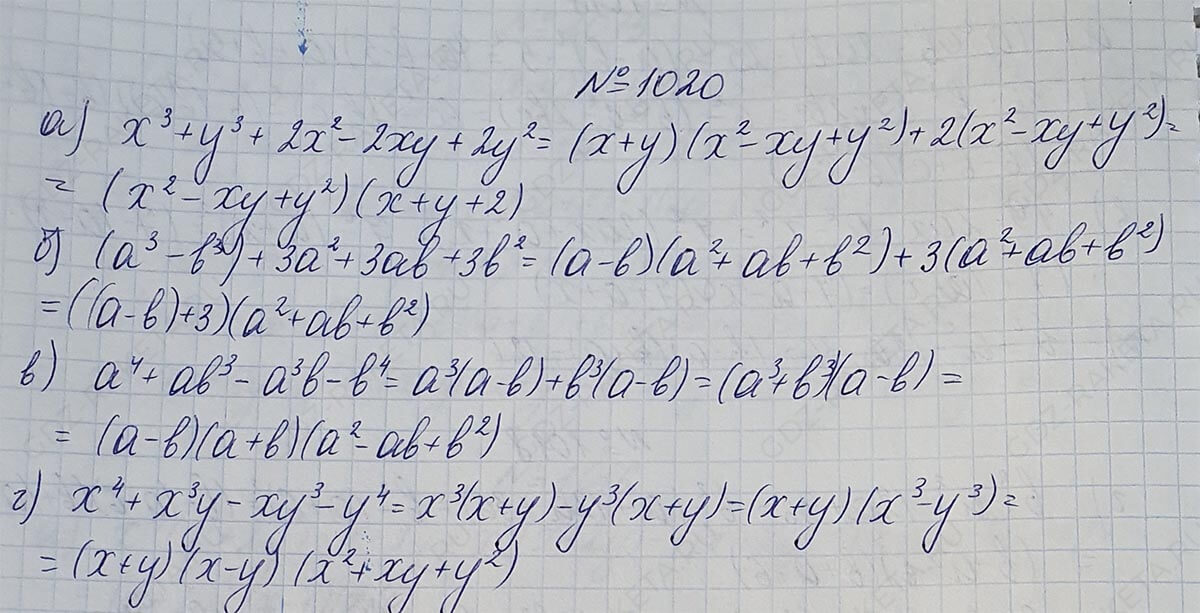 №1020
а) x³+y³+2x²-2xy+2y²=(x+y)(x²-xy+y²)+2(x²-xy+y²)=
=(x²-xy+y²)(x+y+2)
б) (a³-b³)+3a²+3ab+3b²=(a-b)(a²+ab+b²)+3(a²+ab+b²)
=((a-b)+3)(a²+ab+b²)
в) a⁴+ab³-a³b-b⁴=a³(a-b)+b³(a-b)=(a³+b³)(a-b)=
=(a-b)(a+b)(a²-ab+b²)
г) x⁴+x³y-xy³-y⁴=x³(x+y)-y³(x+y)=(x+y)(x³-y³)=
=(x+y)(x-y)(x²+xy+y²)